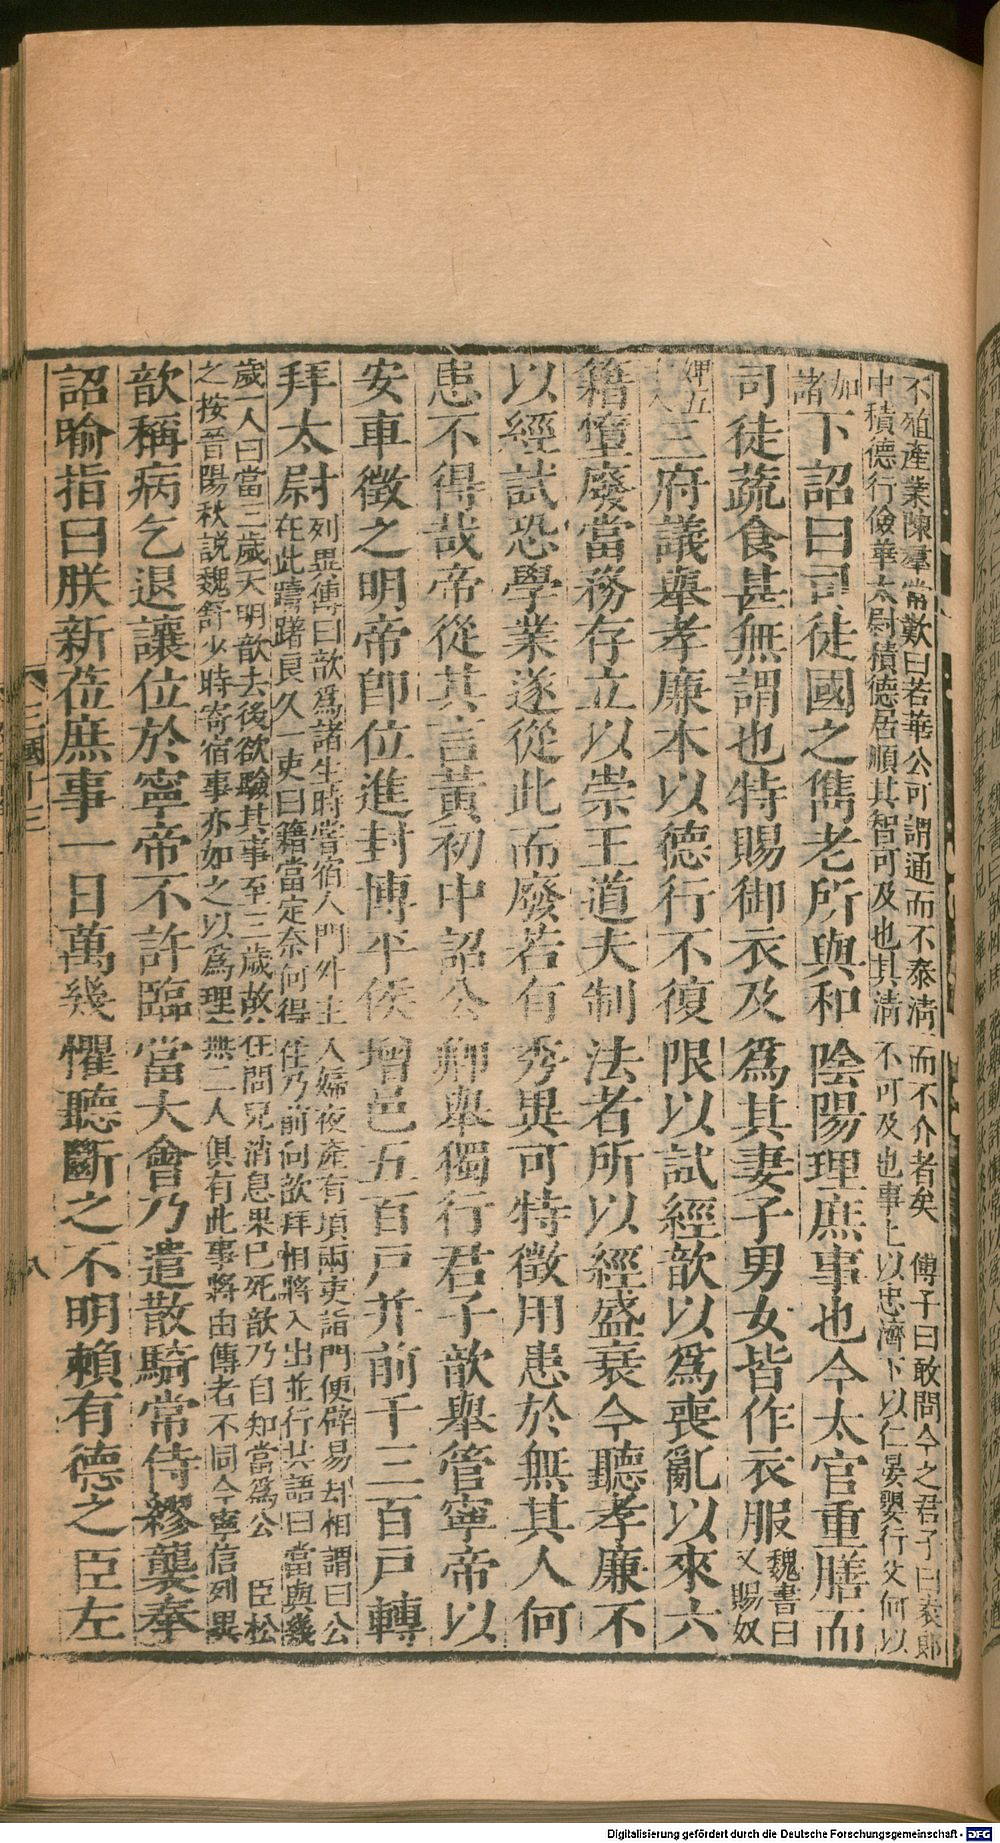 不殖產業陳羣常歎曰若華公可謂通而不泰淸而不介者矣　傅子曰敢問今之君子曰袁郎
中積德行儉華太尉積德居順其智可及也其淸不可及也事上以忠濟下以仁晏嬰行父何以
加
諸
下詔曰司徒國之儁老所與和陰陽理庶事也今太官重膳而
司徒蔬食甚無謂也特賜御衣及爲其妻子男女皆作衣服
魏書曰
又賜奴
婢五
人
三府議舉孝廉本以德行不復限以試經歆以爲喪亂以來六
籍墮廢當務存立以崇王道夫制法者所以經盛衰今聽孝廉不
以經試恐學業遂從此而廢若有秀異可特徵用患於無其人何
患不得哉帝從其言黃初中詔公卿舉獨行君子歆舉管寧帝以
安車徵之明帝卽位進封博平侯增邑五百戶并前千三百戶轉
拜太尉
列異傳曰歆爲諸生時嘗宿人門外主人婦夜產有頃兩吏詣門便辟易却相謂曰公
在此躊躇良久一吏曰籍當定奈何得住乃前向歆拜相將入出並行共語曰當與幾
歲一人曰當三歲天明歆去後欲驗其事至三歲故往問兒消息果已死歆乃自知當爲公　臣松
之按晉陽秋說魏舒少時寄宿事亦如之以爲理無二人俱有此事將由傳者不同今寧信列異
歆稱病乞退讓位於寧帝不許臨當大會乃遣散騎常侍繆襲奉
詔喻指曰朕新莅庶事一日萬幾懼聽斷之不明賴有德之臣左
三國十三
八
Digitalisierung gefördert durch die Deutsche Forschungsgemeinschaft - DFG